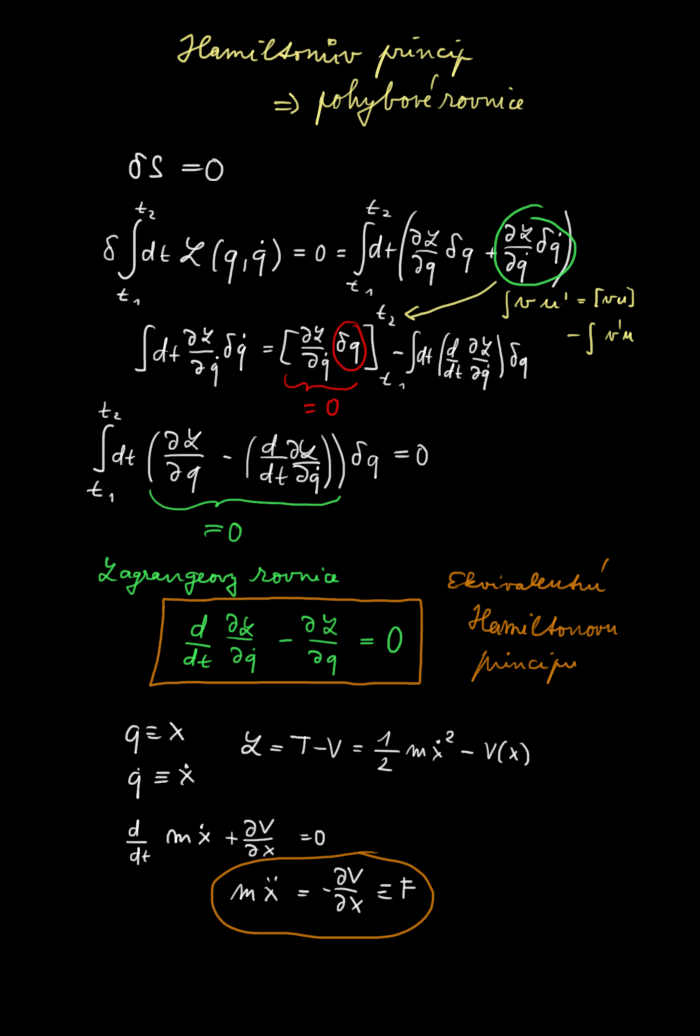 Hamiltonův princip
⇒ pohybové rovnice
δS = 0
δ∫_{t₁}^{t₂} dt ℒ(q, q̇) = 0 = ∫_{t₁}^{t₂} dt (∂ℒ/∂q δq + ∂ℒ/∂q̇ δq̇)
∫ v u' = [vu]
- ∫ v'u
∫ dt ∂ℒ/∂q̇ δq̇ = [∂ℒ/∂q̇ δq]_{t₁}^{t₂} - ∫ dt (d/dt ∂ℒ/∂q̇) δq
= 0
∫_{t₁}^{t₂} dt (∂ℒ/∂q - (d/dt ∂ℒ/∂q̇)) δq = 0
= 0
Lagrangeovy rovnice
d/dt ∂ℒ/∂q̇ - ∂ℒ/∂q = 0
Ekvivalentní
Hamiltonovu
principu
q ≡ x
q̇ ≡ ẋ
ℒ = T - V = 1/2 mẋ² - V(x)
d/dt mẋ + ∂V/∂x = 0
mẍ = -∂V/∂x ≡ F